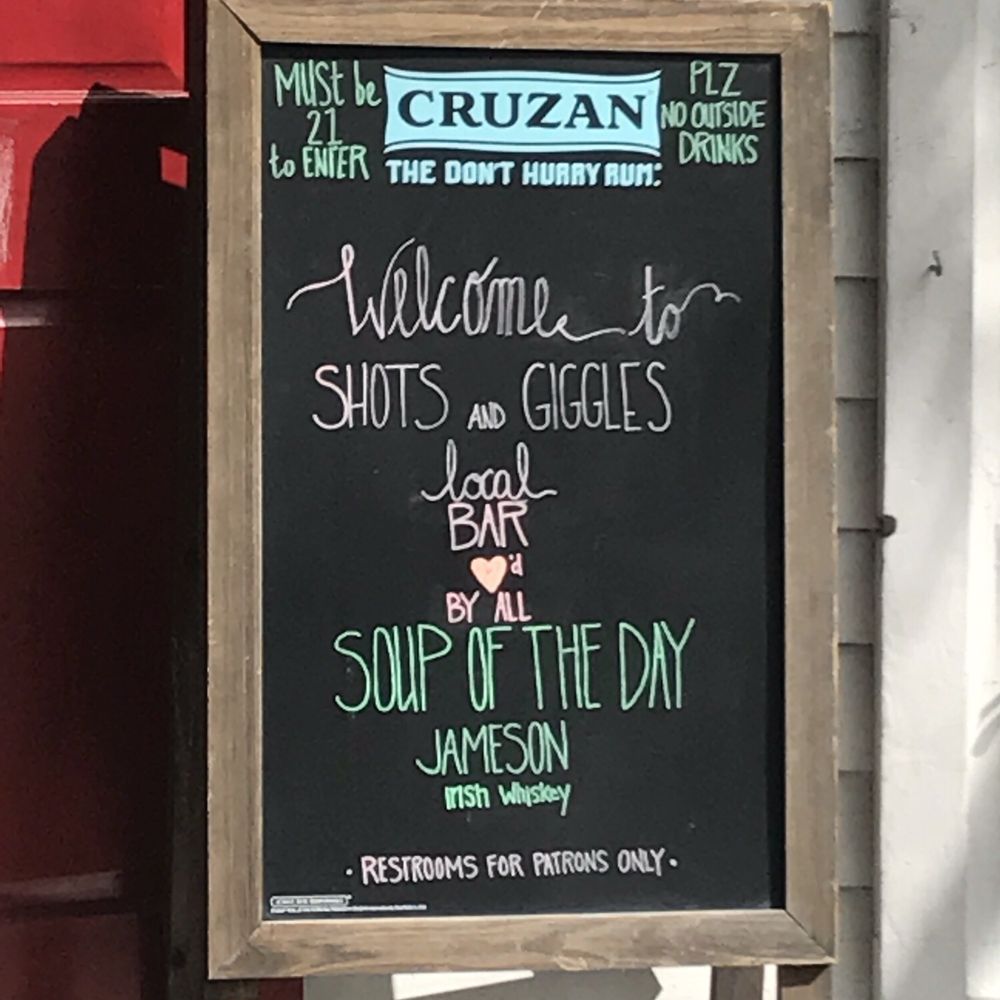 MUSt be
21
to ENTER
CRUZAN
THE DON'T HURRY RUM.
PLZ
NO OUTSIDE
DRINKS
Welcome to
SHOTS AND GIGGLES
local
BAR
♥'d
BY ALL
SOUP OF THE DAY
JAMESON
IrISh WhIskey
· RESTROOMS FOR PATRONS ONLY ·